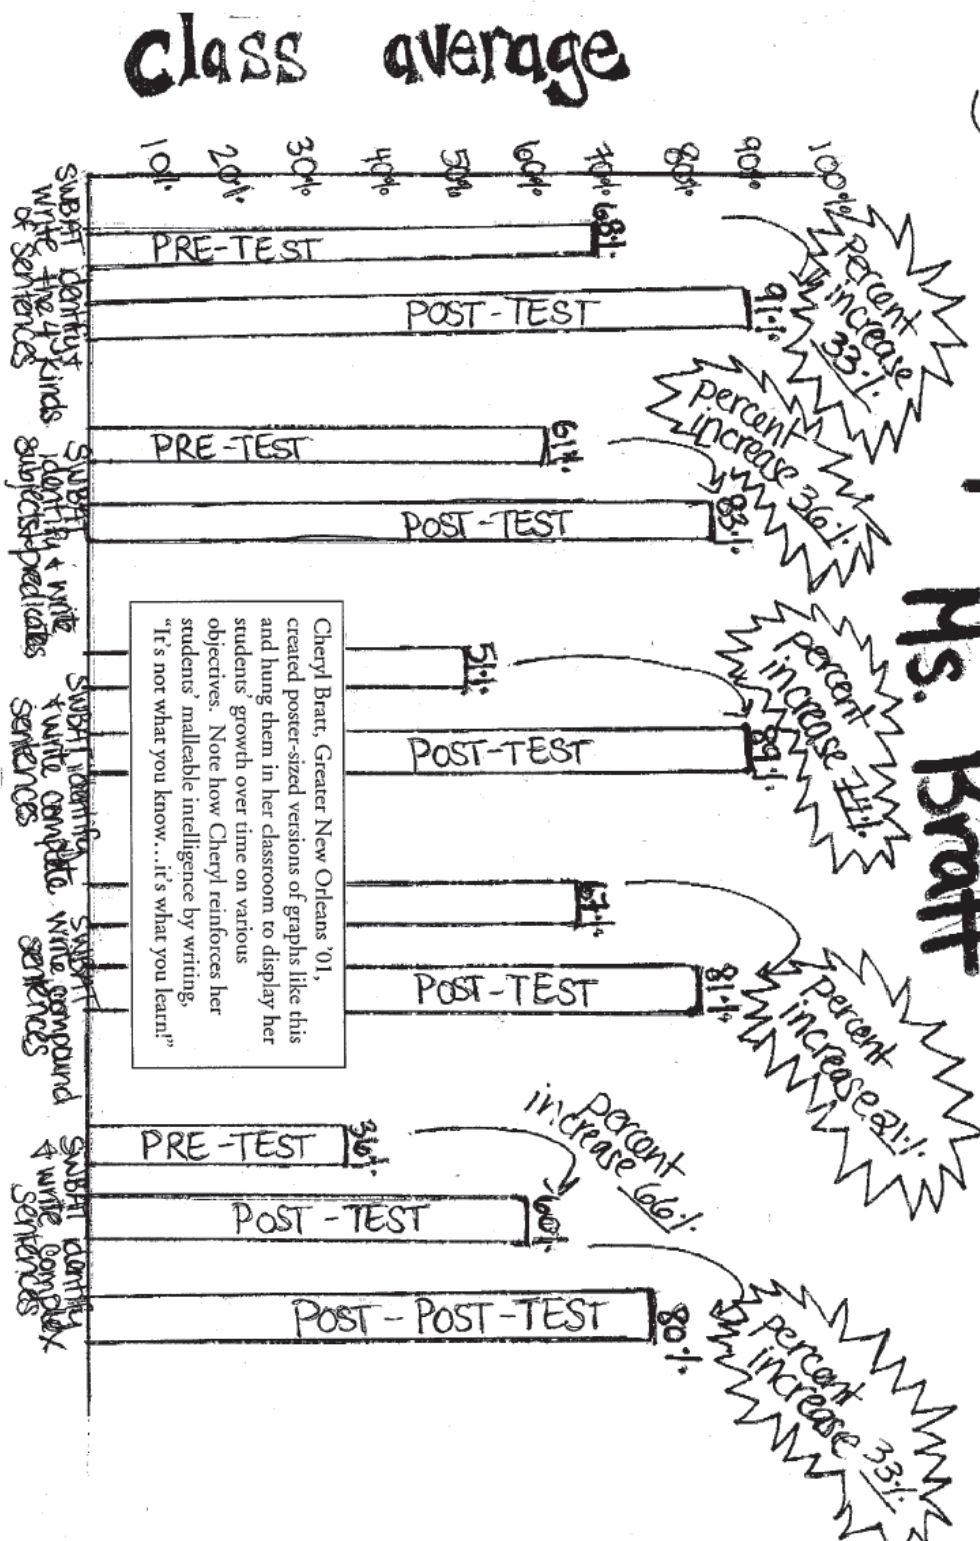 Class average
Ms. Bratt
100%
90%
80%
70%
60%
50%
40%
30%
20%
10%
68%
PRE-TEST
91%
POST-TEST
percent
increase
33%
SWBAT identify &
write the 4 kinds
of sentences
61%
PRE-TEST
83%
POST-TEST
percent
increase 36%
SWBAT
identify & write
subjects & predicates
51%
89%
POST-TEST
percent
increase 74%
SWBAT identify
& write complete
sentences
67%
81%
POST-TEST
percent
increase 21%
SWBAT
write compound
sentences
36%
PRE-TEST
60%
POST-TEST
percent
increase 66%
80%
POST-POST-TEST
percent
increase 33%
SWBAT identify
& write complex
sentences
Cheryl Bratt, Greater New Orleans '01,
created poster-sized versions of graphs like this
and hung them in her classroom to display her
students' growth over time on various
objectives. Note how Cheryl reinforces her
students' malleable intelligence by writing,
“It's not what you know…it's what you learn!”